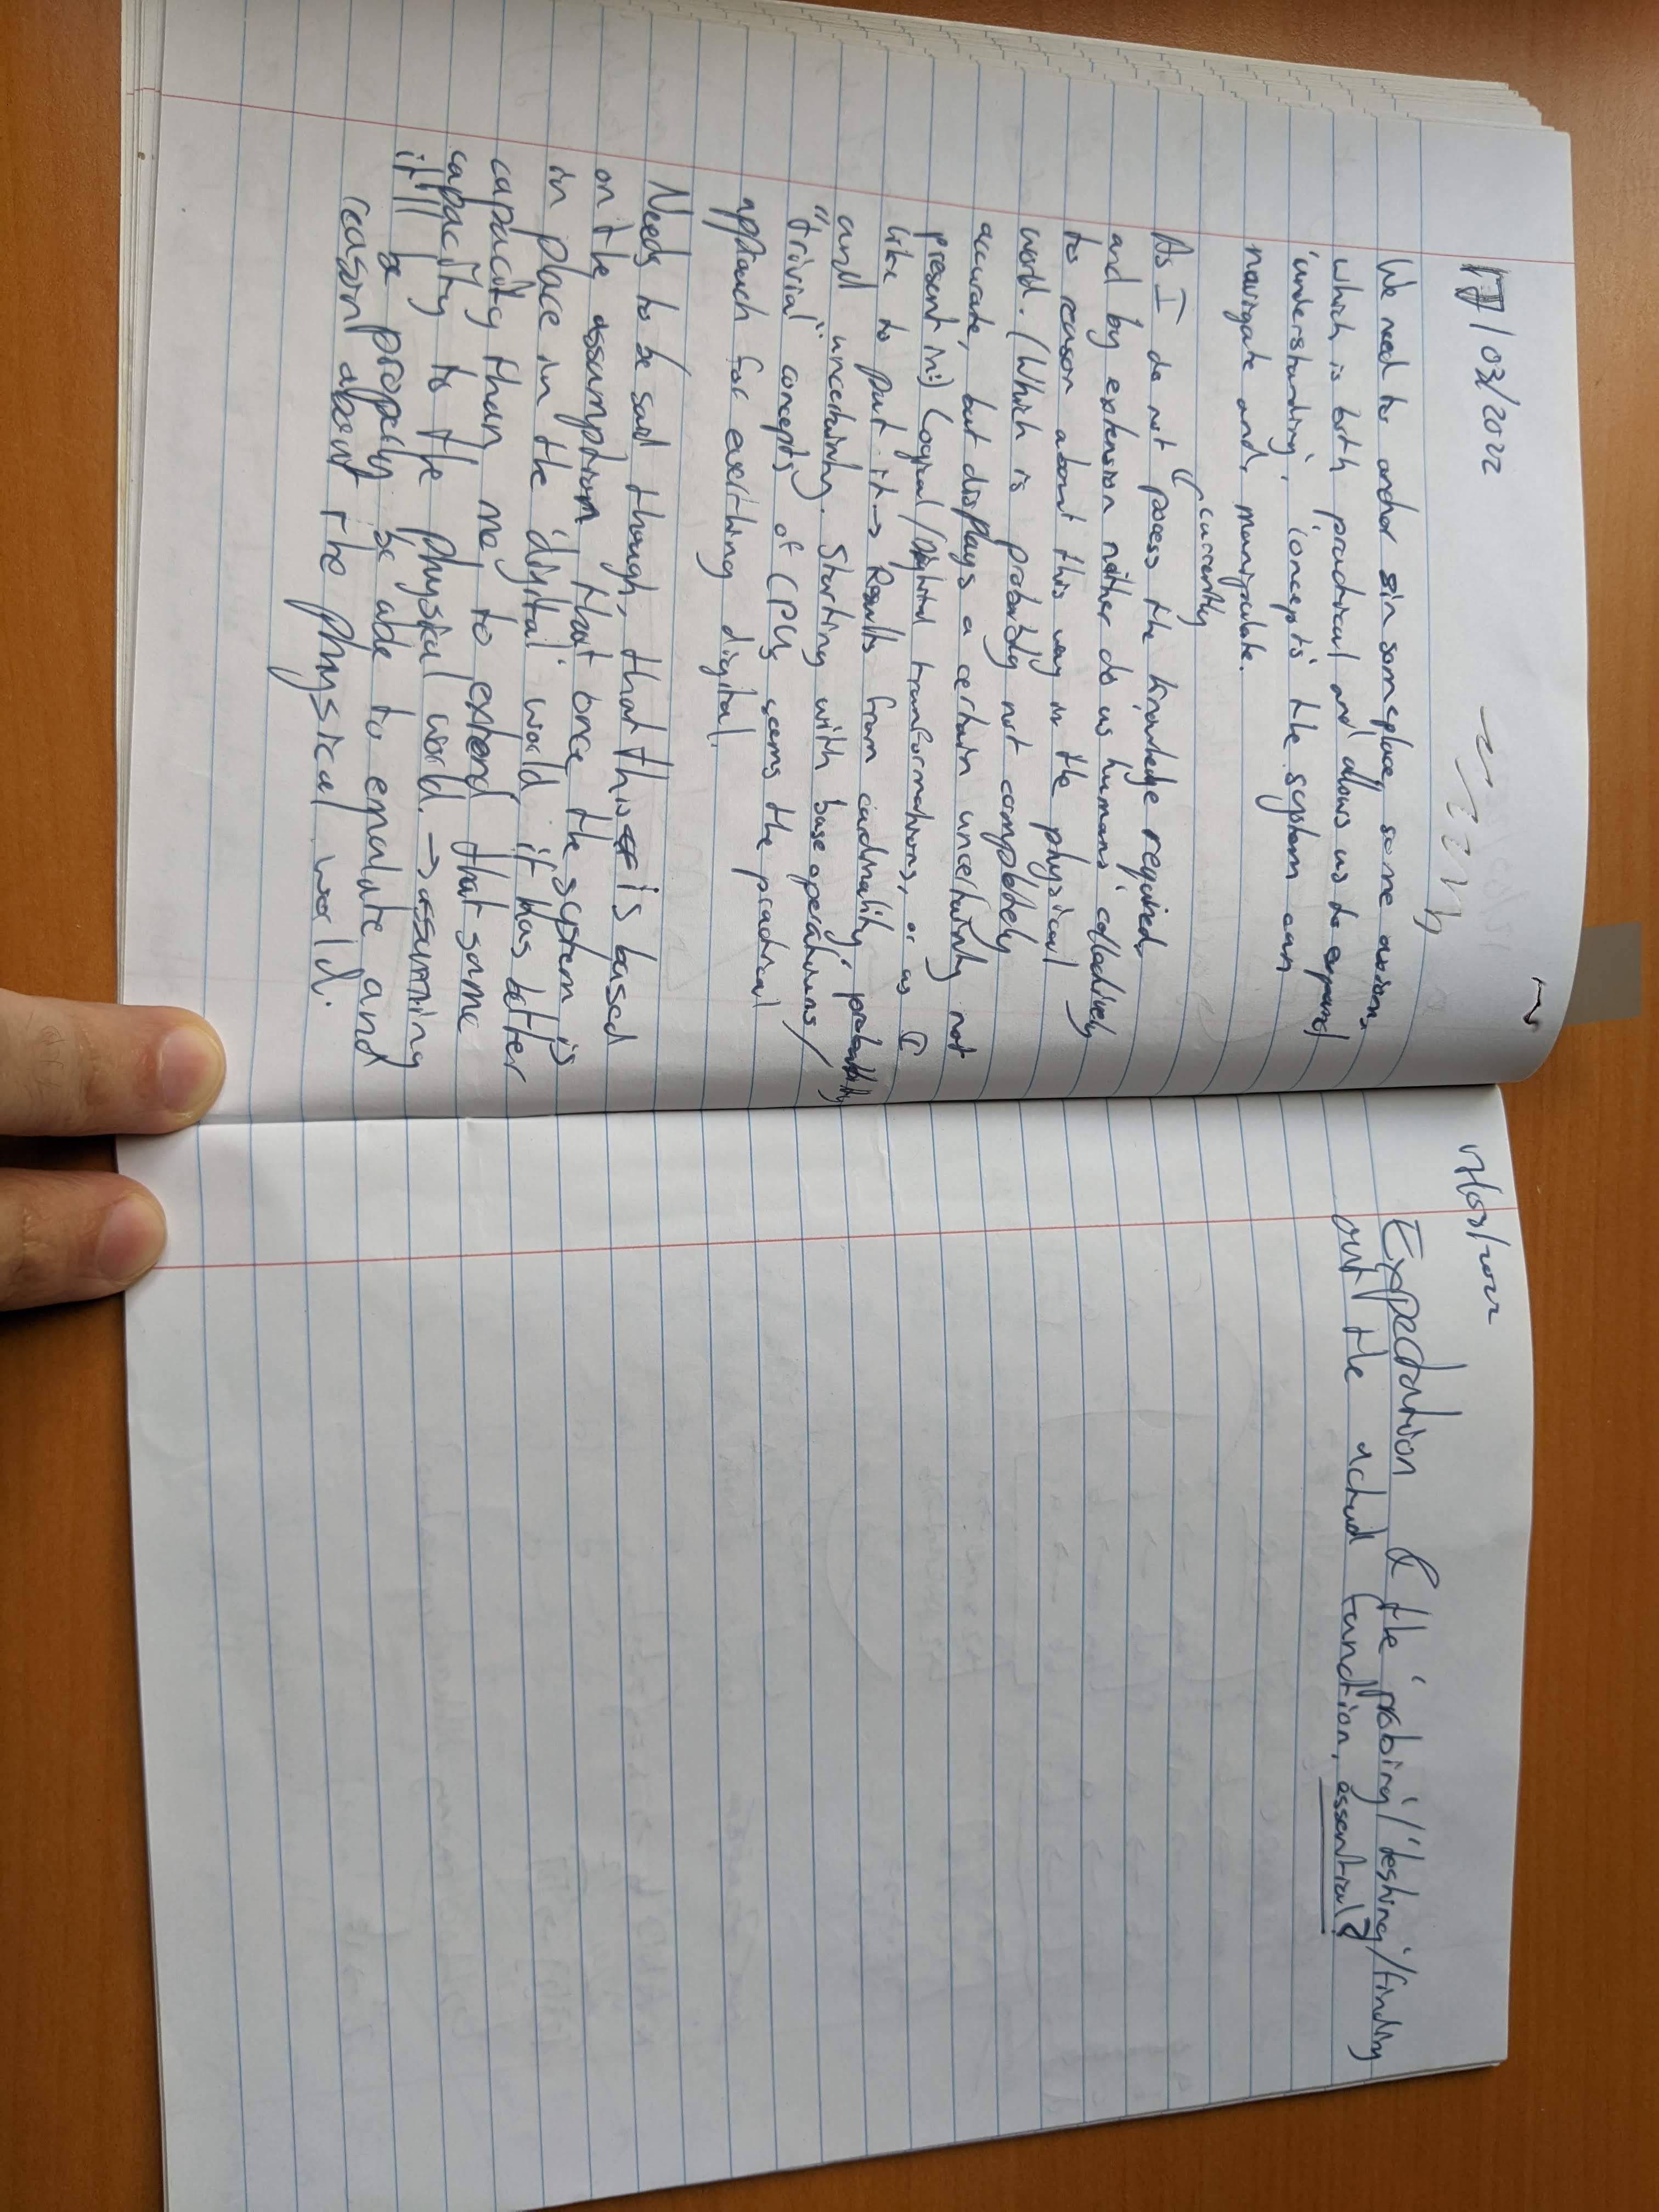 17/03/2022
We need to anchor in someplace, some axioms,
which is both practical and allows us to expand
'understanding', 'concepts' the system can
navigate and manipulate.
(currently
As I do not posess the knowledge required,
and by extension neither do us humans collectively
to reason about this way in the physical
world. (Which is probably not completely
accurate, but displays a certain uncertainty not
present in:) Logical/Digital transformations, or as I
like to put it → Results from cardinality, probability
and uncertainty. Starting with base operations/
"trivial" concepts of CPUs seems the practical
approach for everthing digital.
Needs to be said though, that this is based
on the assumption that once the system is
in place in the 'digital' world, it has better
capacity than me, to extend that same
capacity to the physical world. → assuming
it'll be properly be able to emulate and
reason about the physical world.
17/03/2022
Expectation & the 'probing'/'testing'/finding
out the actual function, essential?